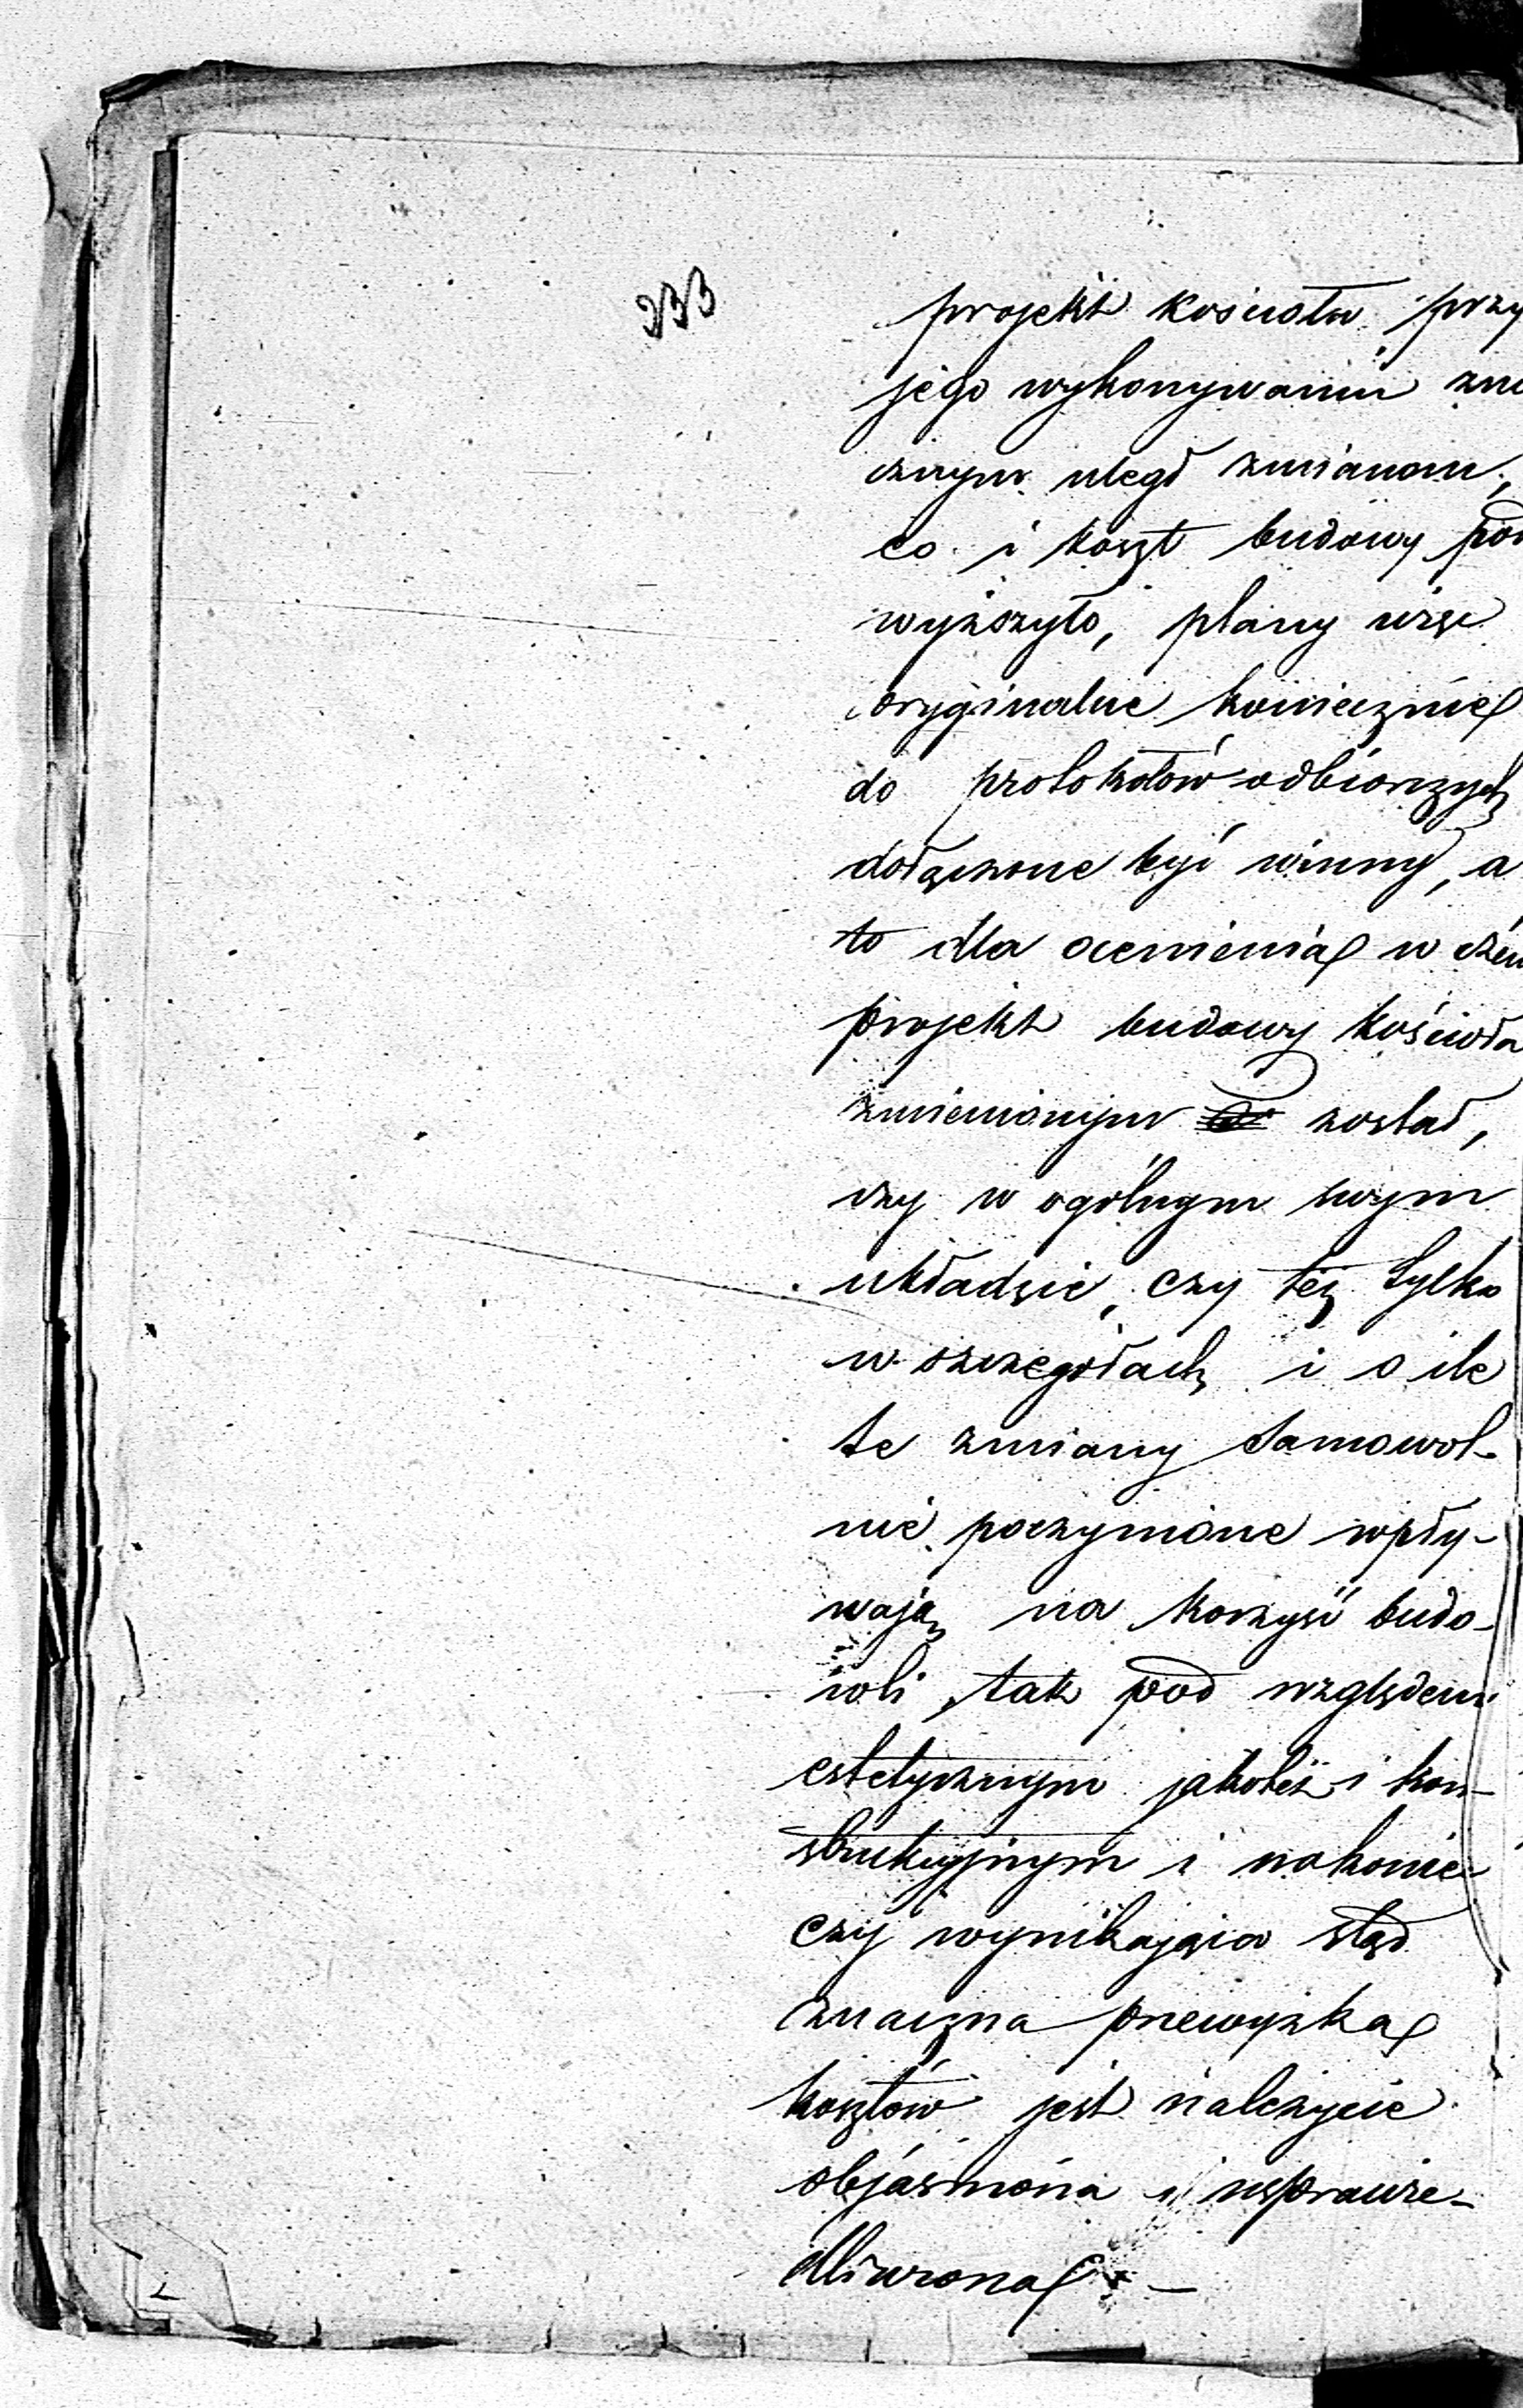 233
projekt kościoła przy
jego wykonywaniu zna
cznym uległ zmianom,
co i koszt budowy pod
wyższyło, plany więc
oryginalne koniecznie
do protokołów odbiorczych
dołączone być winny, a
to dla ocenienia w czem
projekt budowy kościoła
zmienionym został,
czy w ogólnym swym
układzie, czy też tylko
w szczegółach i o ile
te zmiany samowol-
nie poczynione wpły-
wają na korzyść budo-
wli, tak pod względem
estetycznym jakoteż i kon-
strukcyjnym i nakonie-
czy wynikająca stąd
znaczna przewyżka
kosztów jest należycie
objaśniona i usprawie-
dliwiona. —